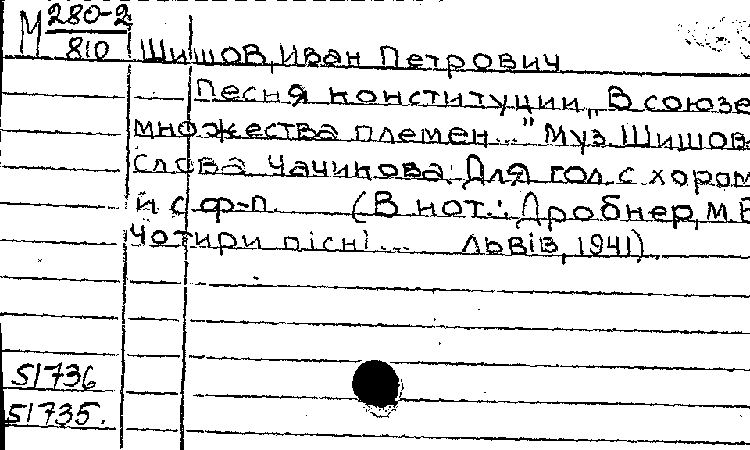 М 280-2
810
Шишов, Иван Петрович
Песня конституции „В союзе
множества племен..." Муз. Шишов
Слова Чачикова. Для гол. с хором
и с ф-п. (В нот.: Дробнер, М.Е
Чотири пісні... Львів, 1941).
51736
51735.